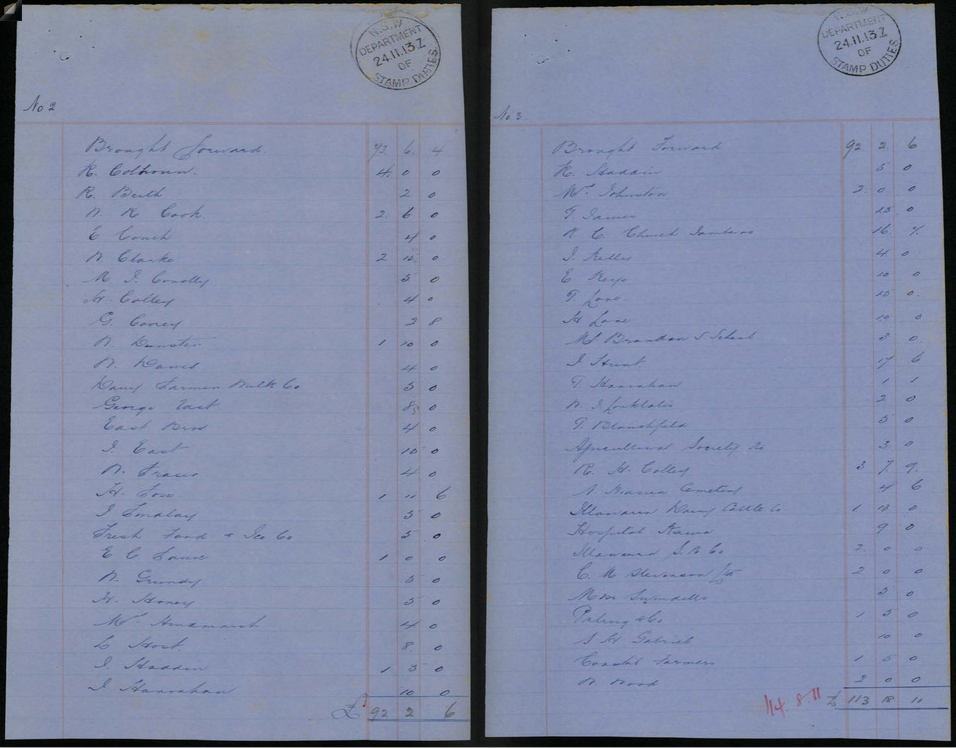 N.S.W.
DEPARTMENT
24.11.13.Z
OF
STAMP DUTIES
No 2
Brought forward 73 6 4
R. Colhoun 4 0 0
R. 2 0
N R Cook 2 6 0
E Couch 4 0
N Clarke 2 12 0
M J Conolly 5 0
H Colley 4 0
G. Coney 2 8
N 1 10 0
N Davis 4 0
Dairy Farmers Milk Co 5 0
George East 0
East Bros 4 0
J. East 10 0
N. 4 0
H. 1 11 6
J Lindsay 5 0
Fresh Food & Ice Co 5 0
E C 1 0 0
N. Grundy 5 0
H. Honey 5 0
4 0
8 0
J. Haddin 1 5 0
J Hanrahan 10 0
£ 92 2 6
N.S.W.
DEPARTMENT
24.11.13.Z
OF
STAMP DUTIES
No 3
Brought Forward 92 2 6
H. Haddin 5 0
Johnston 2 0 0
T James 0
R C Church 16
J. 4 0
E Keys 10 0
T. Love 0
H Love 10 0
Mt Brandon S School 2 0
J Hunt 17 6
T. Hanrahan 1 1
N. J 2 0
T. Blanchfield 5 0
Agricultural Society 5 0
R. H. Colley 3 7 9
Cemetery 4 6
Illawarra Dairy Cattle Co 1 0
Hospital Kiama 9 0
Illawarra S. N Co 2 0 0
C. M Stevenson 2 0 0
Swindells 5 0
Paling & Co 1 5 0
S H Gabriel 10 0
Coastal Farmers 1 5 0
N. Wood 2 0 0
114. 8. 11 £ 113 18 11